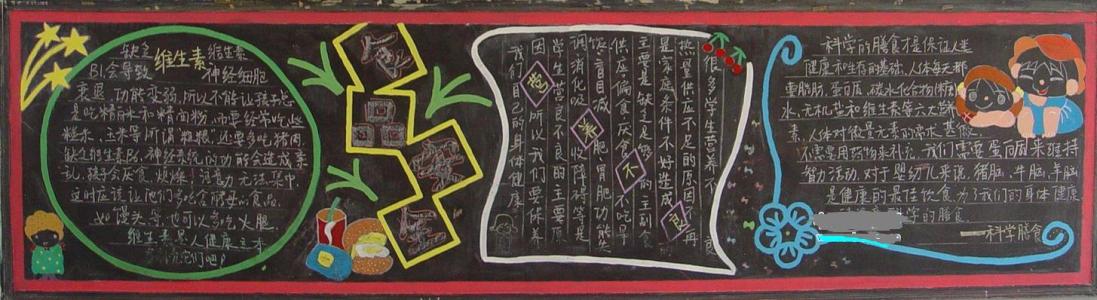 缺乏维生素 维生素
B1会导致 神经细胞
衰退,功能变弱,所以不能让孩子总
是吃精米和精面粉,而要经常吃些
糙米、玉米等所谓"粗粮"还要多吃猪肉
缺乏维生素B6,神经系统的功能会造成紊
乱,孩子会厌食,烦燥,注意力无法集中.
这时应该让他们多吃含酵母的食品,
如馒头等,也可以多吃火腿.
维生素是人健康之本
它们吧!
营养不良
很多多学生营养不良
热量供应不足的原因
是家庭条件不好造成
主要是缺乏足够的主副食
供应偏食厌食不吃早
饭盲目减肥胃肠功能失
调消化吸收障碍等是
学生营养不良的主要原
因所以我们要保养
我们自己的身体健康
科学的膳食才是保证人类
健康和生存的基础.人体每天都
要脂肪、蛋白质、碳水化合物
水、无机盐和维生素等六大营
素,人体对微量元素的需求甚微
不需要用药物来补充,我们需要蛋而因来维持
智力活动,对于婴幼儿来说,猪脑、牛脑、羊脑
是健康的最佳饮食,为了我们的身体健康
学的膳食
——科学膳食